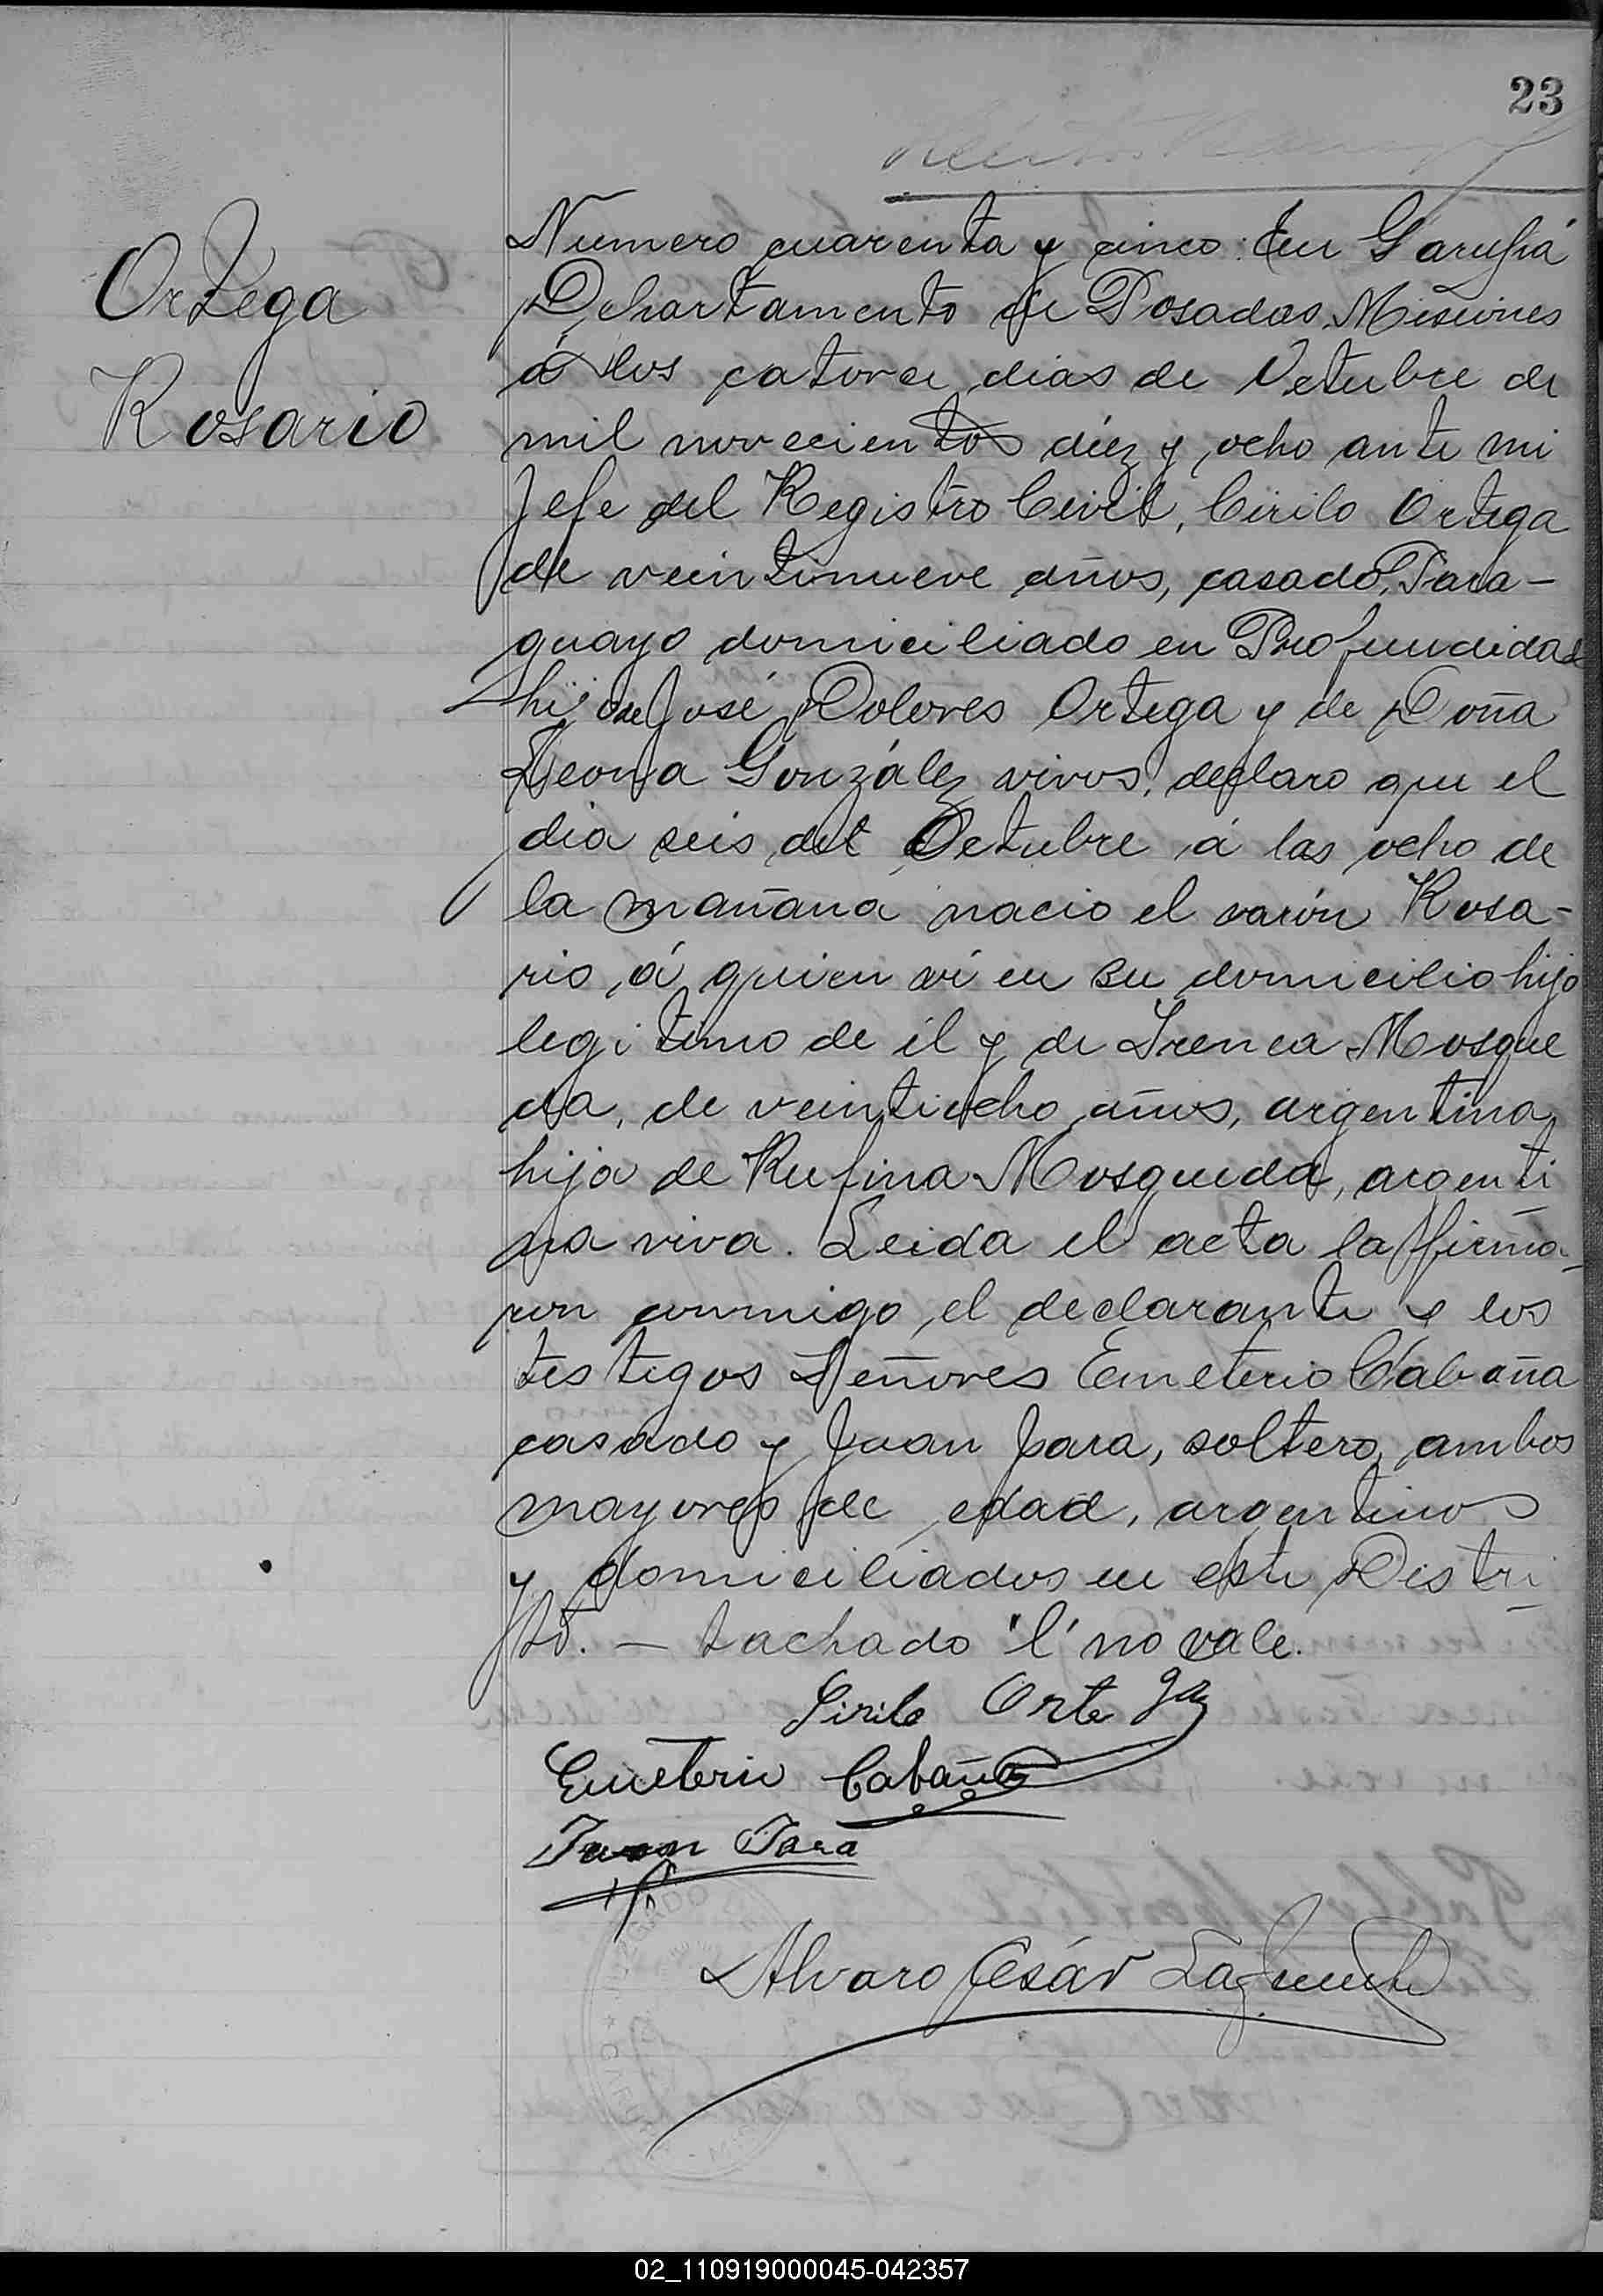 23
Ortega
Rosario
Numero cuarenta y cinco: En Garupá
Departamento de Posadas, Misiones
á los catorce dias de Octubre de
mil novecientos diez y ocho ante mi
Jefe del Registro Civil, Cirilo Ortega
de veintinueve años, casado, Para-
guayo domiciliado en Profundidad
hijo de José Dolores Ortega y de Doña
Leona González vivos, declaro que el
dia seis del Octubre á las ocho de
la mañana nacio el varón Rosa-
rio, á quien vi en su domicilio hijo
legitimo de él y de Irenea Mosque
da, de veintiocho años, argentina,
hija de Rufina Mosqueda, argenti
na viva. Leida el acta la firma-
ron conmigo el declarante y los
testigos Señores Emeterio Cabaña
casado y Juan Jara, soltero, ambos
mayores de edad, argentinos
y domiciliados en este Distri
to. — tachado "l" no vale.
Sirilo Ortega
Emeterio Cabaña
Juan Jara
Alvaro César
02_110919000045-042357